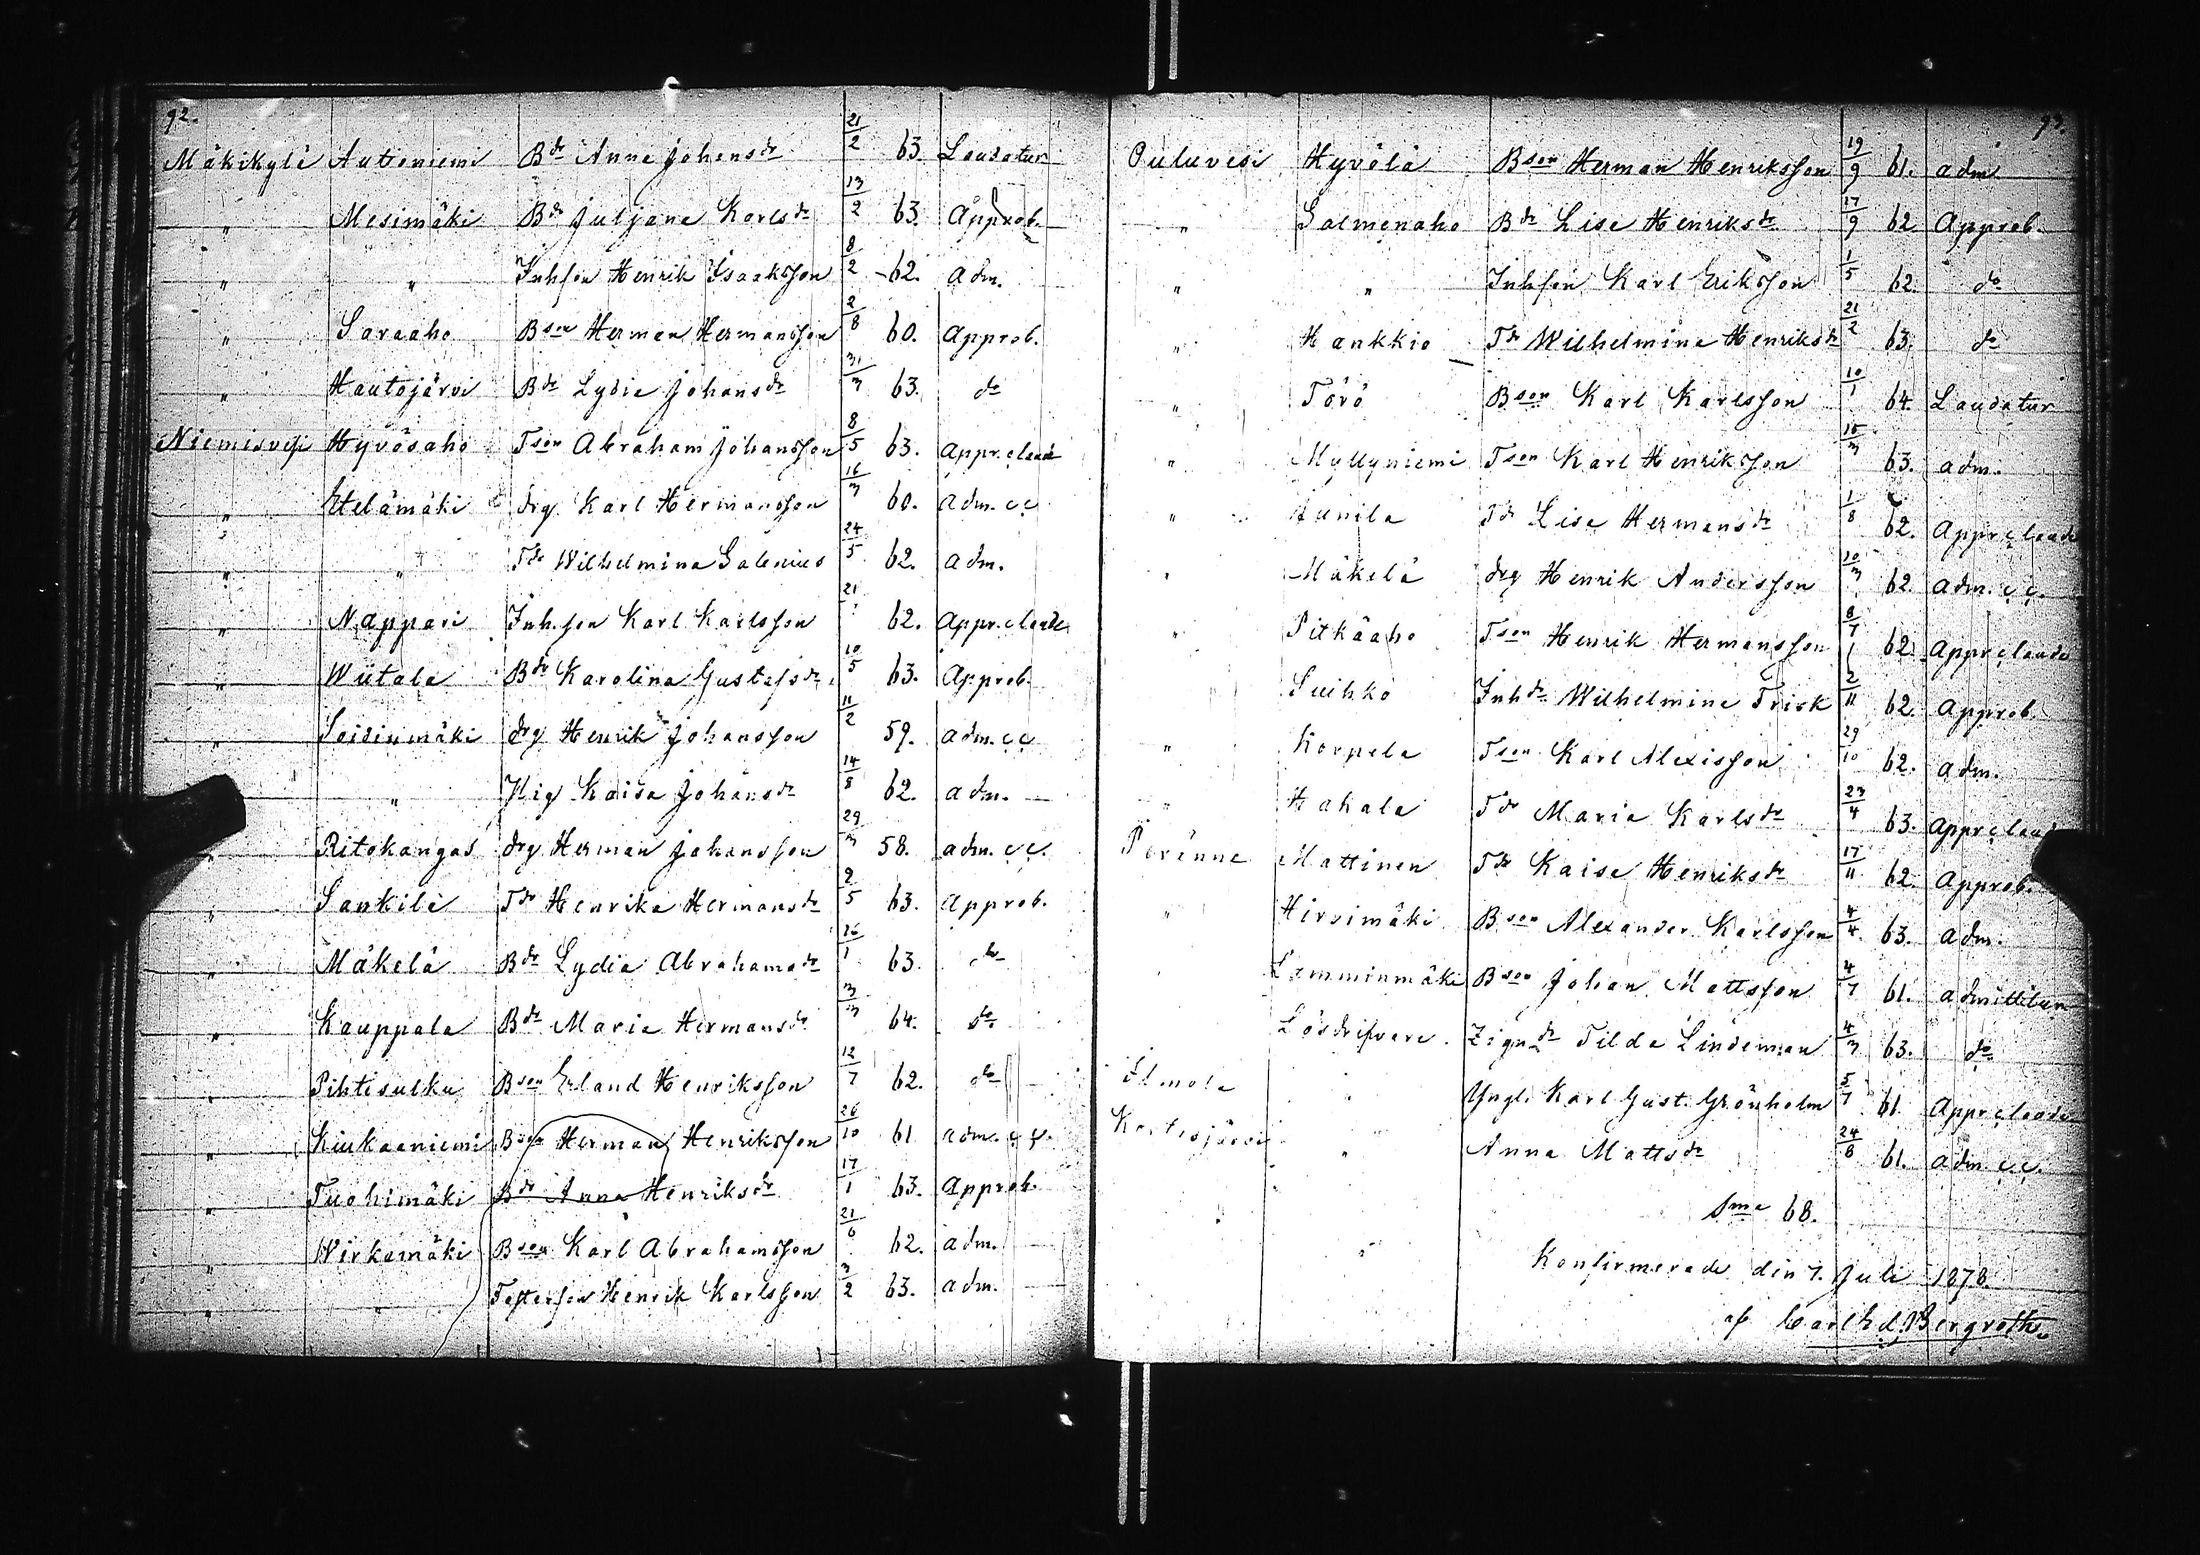 92.
Mäkikylä Autioniemi Bdr Anna Johansdr 21/2 63. Laudatur
" Mesimäki Bdr Juljana Karlsdr 13/2 63. Approb.
" " Inhson Henrik Isaaksson 8/2 -62. adm.
" Saraaho Bson Herman Hermansson 2/8 60. Approb.
" Hautojärvi Bdr Lydia Johansdr 31/3 63. do
Niemisvesi Hyvösaho Tson Abraham Johansson 8/5 63. Appr. c laude
" Etelämäki drg Karl Hermansson 16/3 60. adm. c c
" " Tdr Wilhelmina Salenius 24/5 62. adm.
" Nappari Inh.son Karl Karlsson 21/ 62. Appr. c laude
" Wiitala Bdr Karolina Gustafsdr 10/5 63. Approb.
" Soidinmäki drg Henrik Johansson 11/2 59. adm. c c
" Pig Kaisa Johansdr 14/8 62. adm.
" Ritokangas drg Herman Johansson 29/3 58. adm. c c.
" Sankila Tdr Henrika Hermansdr 2/5 63. Approb.
" Mäkelä Bdr Lydia Abrahamsdr 26/1 63. do
" Kauppala Bdr Maria Hermansdr 3/3 64. do
" Pihtisulku Bson Erland Henriksson 12/7 62. do
" Kiukaaniemi Bson Herman Henriksson 26/10 61 adm. c c.
" Tuohimäki Bdr Anna Henriksdr 17/1 63. Approb.
" Wirkamäki Bson Karl Abrahamsson 21/6 62. adm.
" " Fosterson Henrik Karlsson 3/2 63. adm.
93.
Ouluvesi Hyvölä Bson Herman Henriksson 19/9 61. adm
" Salmenaho Bdr Lisa Henriksdr 17/9 62 Approb.
" " Inhson Karl Eriksson 1/5 62. do
" Hankkio Tdr Wilhelmina Henriksdr 21/2 63. do
" Törö Bson Karl Karlsson 10/1 64. Laudatur
" Myllyniemi Tson Karl Henriksson 15/3 63. adm.
" Aunila Tdr Lisa Hermansdr 1/8 62. Appr c laude
" Mäkelä drg Henrik Andersson 20/3 62. adm. c c.
" Pitkäaho Tson Henrik Hermansson 8/7 62. Appr c laude
Suihko Inhdr Wilhelmina Frisk 2/11 62. Approb.
" Korpela Tson Karl Alexisson 29/10 62. adm.
" Hakala Tdr Maria Karlsdr 23/4 63. Appr c laude
Peränne Mattinen Tdr Kaisa Henriksdr 17/11 62. Approb.
" Hirsimäki Bson Alexander Karlsson 4/4 63. adm.
Lamminmäki Bson Johan Mattsson 4/7 61. admittitur
Lösdrifvare Zign.dr Tilda Lindeman 4/3 63. do
Ilmola " Yngl. Karl Gust. Grönholm 5/7 61 Appr c laude
" Anna Mattsdr 24/8 61. adm c c.
Sma 68.
Konfirmerade den 7. Juli 1878
af Carl H. d. Bergroth